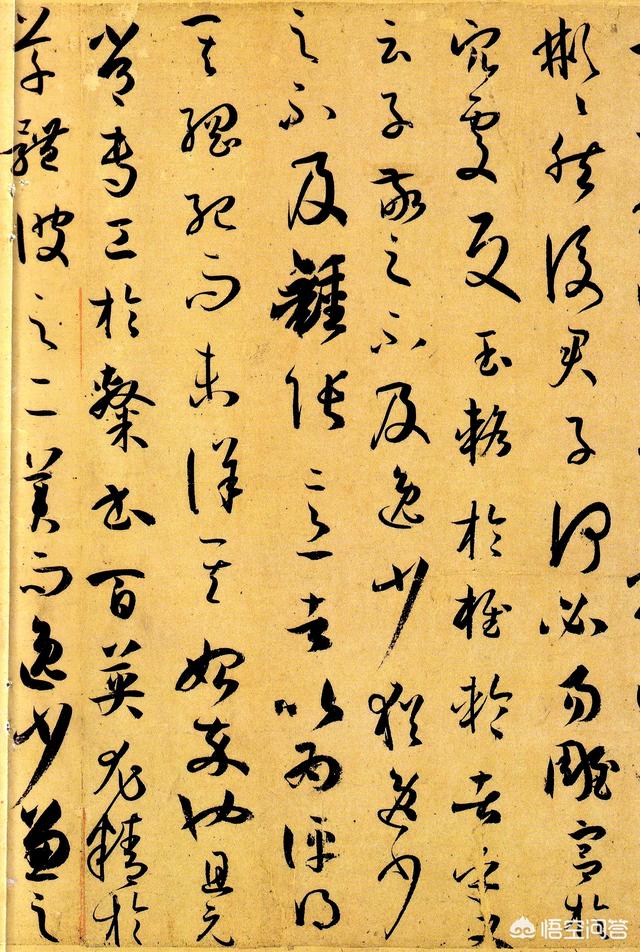 彬彬然後君子何必易雕宮於
穴處反玉輅於椎輪者乎又
云子敬之不及逸少猶逸少
之不及鍾張意者以為評得
其綱紀而未詳其始卒也且元
常專工於隸書百英尤精於
草體彼之二美而逸少兼之
悟空问答